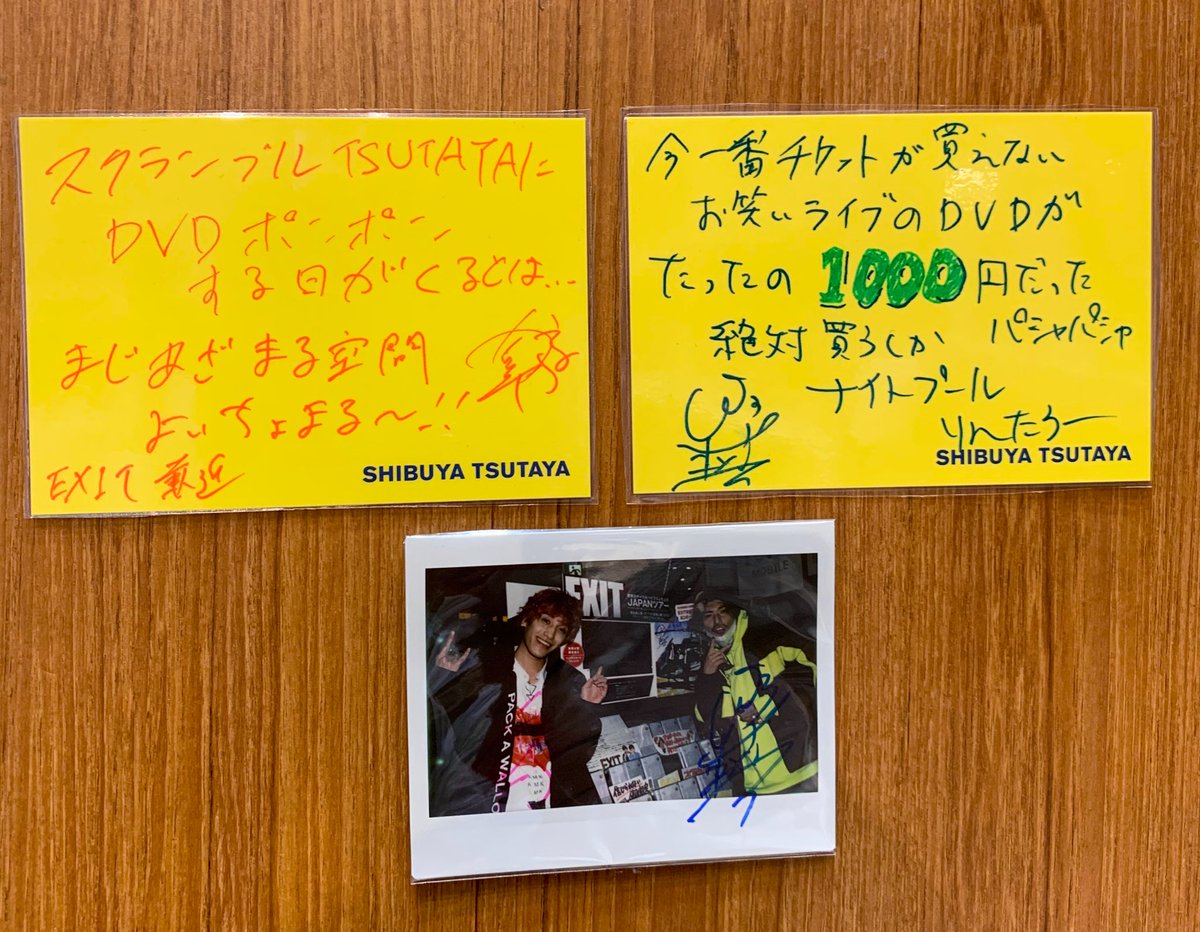 スクランブルTSUTAYAに
DVDポンポン
する日がくるとは…
まじめざまる空間
よいちょまる〜!!
EXIT 兼近
SHIBUYA TSUTAYA
今一番チケットが買えない
お笑いライブのDVDが
たったの1000円だった
絶対買うしか パシャパシャ
ナイトプール
りんたろー
SHIBUYA TSUTAYA
MOBILE
EXIT
JAPANツアー
PACK A WALLO
EXIT